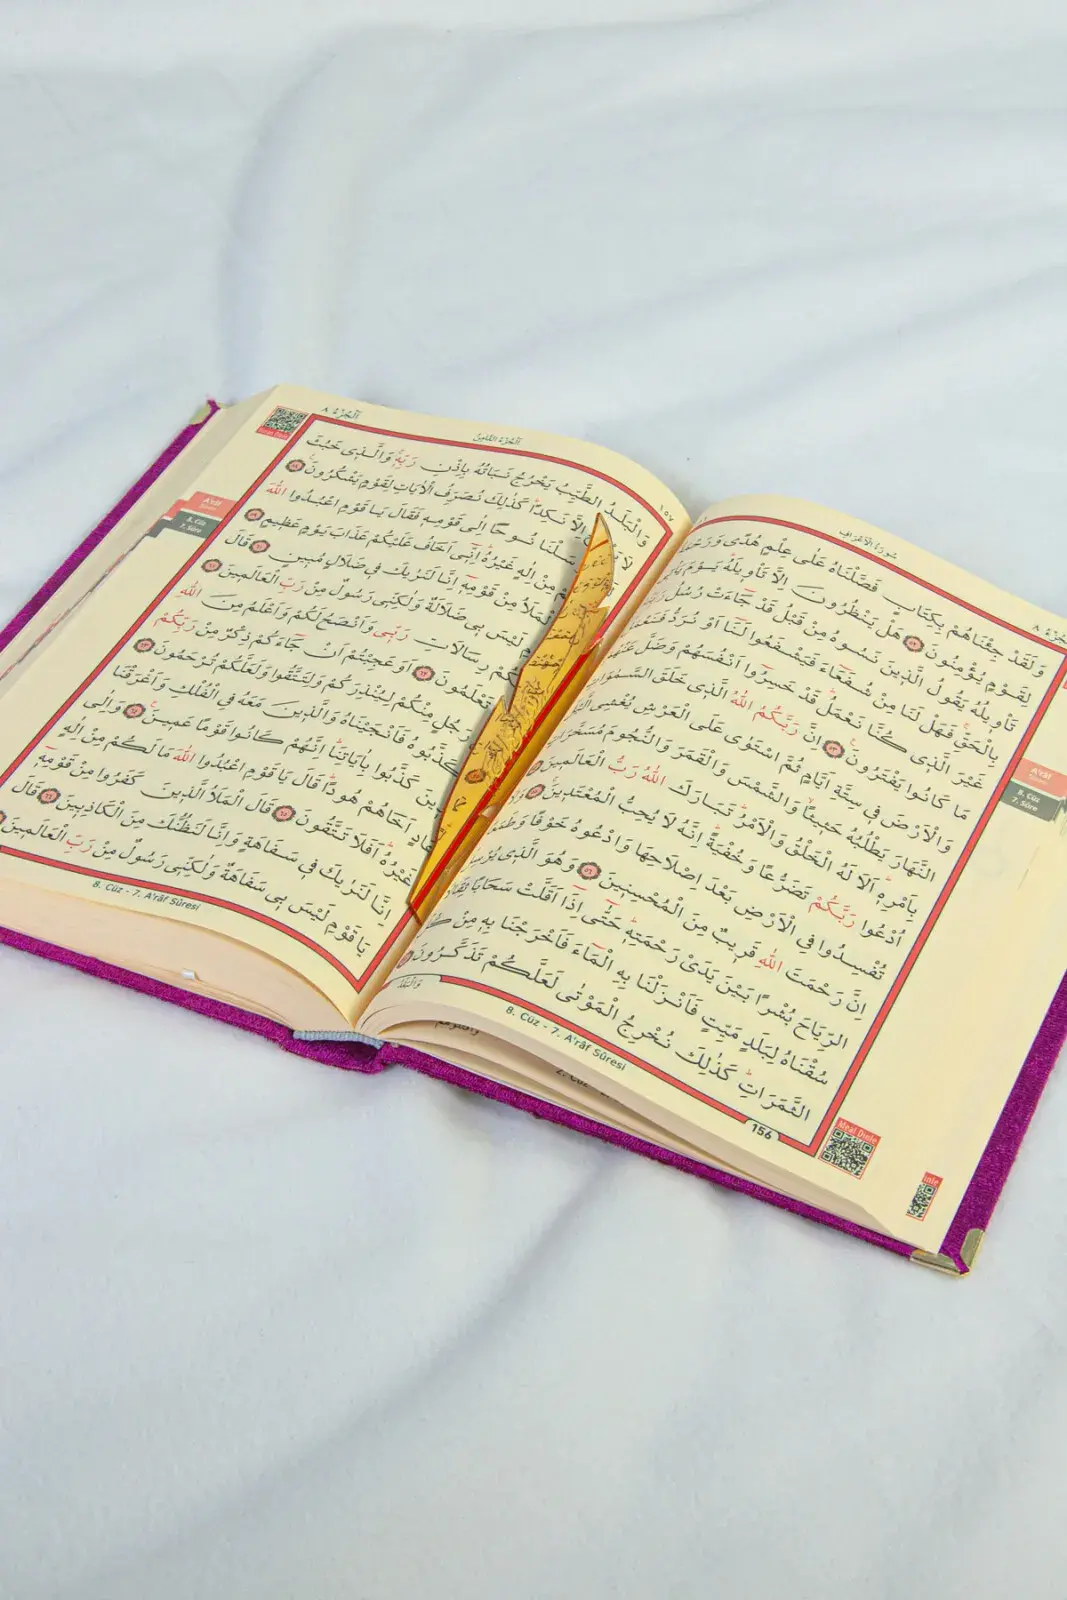 سُورَةُ الْاَعْرَافِ
وَلَقَدْ جِئْنَاهُمْ بِكِتَابٍ فَصَّلْنَاهُ عَلٰى عِلْمٍ هُدًى
لِقَوْمٍ يُؤْمِنُونَ ٥٢ هَلْ يَنْظُرُونَ اِلَّا تَأْوِيلَهُ يَوْمَ
تَأْوِيلُهُ يَقُولُ الَّذِينَ نَسُوهُ مِنْ قَبْلُ قَدْ جَٓاءَتْ رُسُلُ
بِالْحَقِّ فَهَلْ لَنَا مِنْ شُفَعَٓاءَ فَيَشْفَعُوا لَنَٓا اَوْ نُرَدُّ
غَيْرَ الَّذِي كُنَّا نَعْمَلُ قَدْ خَسِرُٓوا اَنْفُسَهُمْ وَضَلَّ
مَا كَانُوا يَفْتَرُونَ ٥٣ اِنَّ رَبَّكُمُ اللهُ الَّذِي خَلَقَ
وَالْاَرْضَ فِي سِتَّةِ اَيَّامٍ ثُمَّ اسْتَوٰى عَلَى الْعَرْشِ يُغْشِي
النَّهَارَ يَطْلُبُهُ حَثِيثًا وَالشَّمْسَ وَالْقَمَرَ وَالنُّجُومَ
بِاَمْرِهِ اَلَا لَهُ الْخَلْقُ وَالْاَمْرُ تَبَارَكَ اللهُ رَبُّ الْعَالَمِينَ
اُدْعُوا رَبَّكُمْ تَضَرُّعًا وَخُفْيَةً اِنَّهُ لَا يُحِبُّ الْمُعْتَدِينَ ٥٥
تُفْسِدُوا فِي الْاَرْضِ بَعْدَ اِصْلَاحِهَا وَادْعُوهُ خَوْفًا
اِنَّ رَحْمَتَ اللهِ قَرِيبٌ مِنَ الْمُحْسِنِينَ ٥٦ وَهُوَ الَّذِي
الرِّيَاحَ بُشْرًا بَيْنَ يَدَيْ رَحْمَتِهِ حَتّٰٓى اِذَٓا اَقَلَّتْ سَحَابًا
سُقْنَاهُ لِبَلَدٍ مَيِّتٍ فَاَنْزَلْنَا بِهِ الْمَٓاءَ فَاَخْرَجْنَا بِهِ مِنْ
الثَّمَرَاتِ كَذٰلِكَ نُخْرِجُ الْمَوْتٰى لَعَلَّكُمْ تَذَكَّرُونَ
وَالْبَلَدُ
156
8. Cüz - 7. A'râf Sûresi
A'râf
8. Cüz
7. Sûre
Meal Dinle
اَلْجُزْءُ ٨
اَلْجُزْءُ الثَّامِنُ
١٥٧
وَالْبَلَدُ الطَّيِّبُ يَخْرُجُ نَبَاتُهُ بِاِذْنِ رَبِّهِ وَالَّذِي خَبُثَ
لَا اِلَّا نَكِدًا كَذٰلِكَ نُصَرِّفُ الْاٰيَاتِ لِقَوْمٍ يَشْكُرُونَ ٥٨
نُوحًا اِلٰى قَوْمِهِ فَقَالَ يَا قَوْمِ اعْبُدُوا اللهَ
مِنْ اِلٰهٍ غَيْرُهُ اِنِّٓي اَخَافُ عَلَيْكُمْ عَذَابَ يَوْمٍ عَظِيمٍ ٥٩
مِنْ قَوْمِهِٓ اِنَّا لَنَرٰيكَ فِي ضَلَالٍ مُبِينٍ ٦٠ قَالَ
لَيْسَ بِي ضَلَالَةٌ وَلٰكِنِّي رَسُولٌ مِنْ رَبِّ الْعَالَمِينَ ٦١
رِسَالَاتِ رَبِّي وَاَنْصَحُ لَكُمْ وَاَعْلَمُ مِنَ اللهِ
تَعْلَمُونَ ٦٢ اَوَعَجِبْتُمْ اَنْ جَٓاءَكُمْ ذِكْرٌ مِنْ رَبِّكُمْ
رَجُلٍ مِنْكُمْ لِيُنْذِرَكُمْ وَلِتَتَّقُوا وَلَعَلَّكُمْ تُرْحَمُونَ ٦٣
فَاَنْجَيْنَاهُ وَالَّذِينَ مَعَهُ فِي الْفُلْكِ وَاَغْرَقْنَا
كَذَّبُوا بِاٰيَاتِنَا اِنَّهُمْ كَانُوا قَوْمًا عَمِينَ ٦٤ وَاِلٰى
عَادٍ اَخَاهُمْ هُودًا قَالَ يَا قَوْمِ اعْبُدُوا اللهَ مَا لَكُمْ مِنْ اِلٰهٍ
غَيْرُهُ اَفَلَا تَتَّقُونَ ٦٥ قَالَ الْمَلَاُ الَّذِينَ كَفَرُوا مِنْ قَوْمِهِٓ
اِنَّا لَنَرٰيكَ فِي سَفَاهَةٍ وَاِنَّا لَنَظُنُّكَ مِنَ الْكَاذِبِينَ ٦٦ قَالَ
يَا قَوْمِ لَيْسَ بِي سَفَاهَةٌ وَلٰكِنِّي رَسُولٌ مِنْ رَبِّ الْعَالَمِينَ
8. Cüz - 7. A'râf Sûresi
A'râf
8. Cüz
7. Sûre